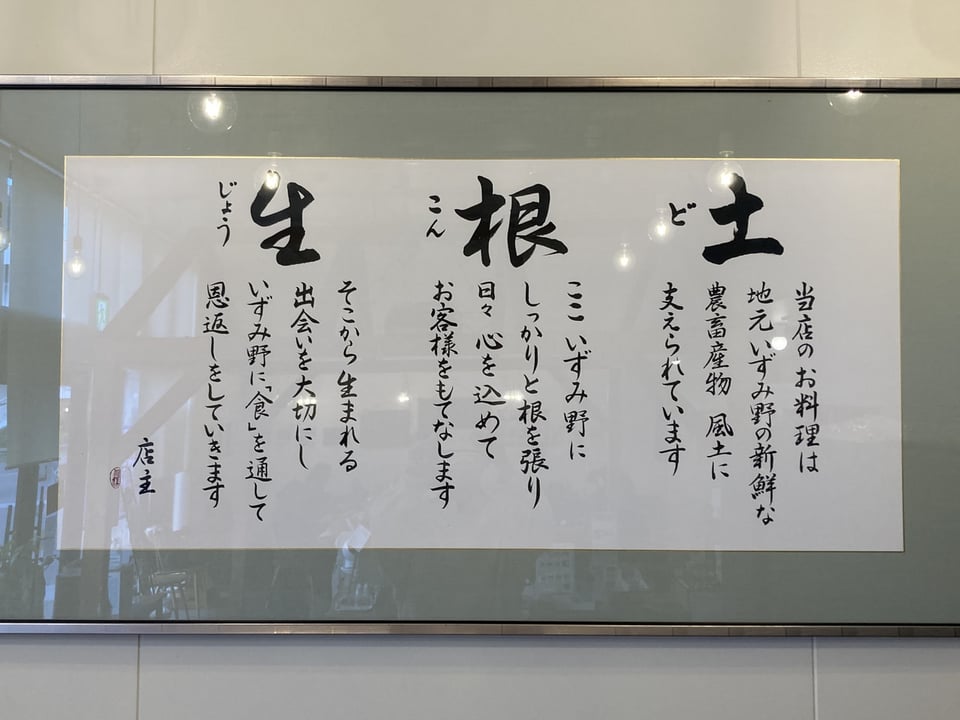 土
ど
当店のお料理は
地元いずみ野の新鮮な
農畜産物 風土に
支えられています
根
こん
ここいずみ野に
しっかりと根を張り
日々 心を込めて
お客様をもてなします
生
じょう
そこから生まれる
出会いを大切にし
いずみ野に「食」を通して
恩返しをしていきます
店主